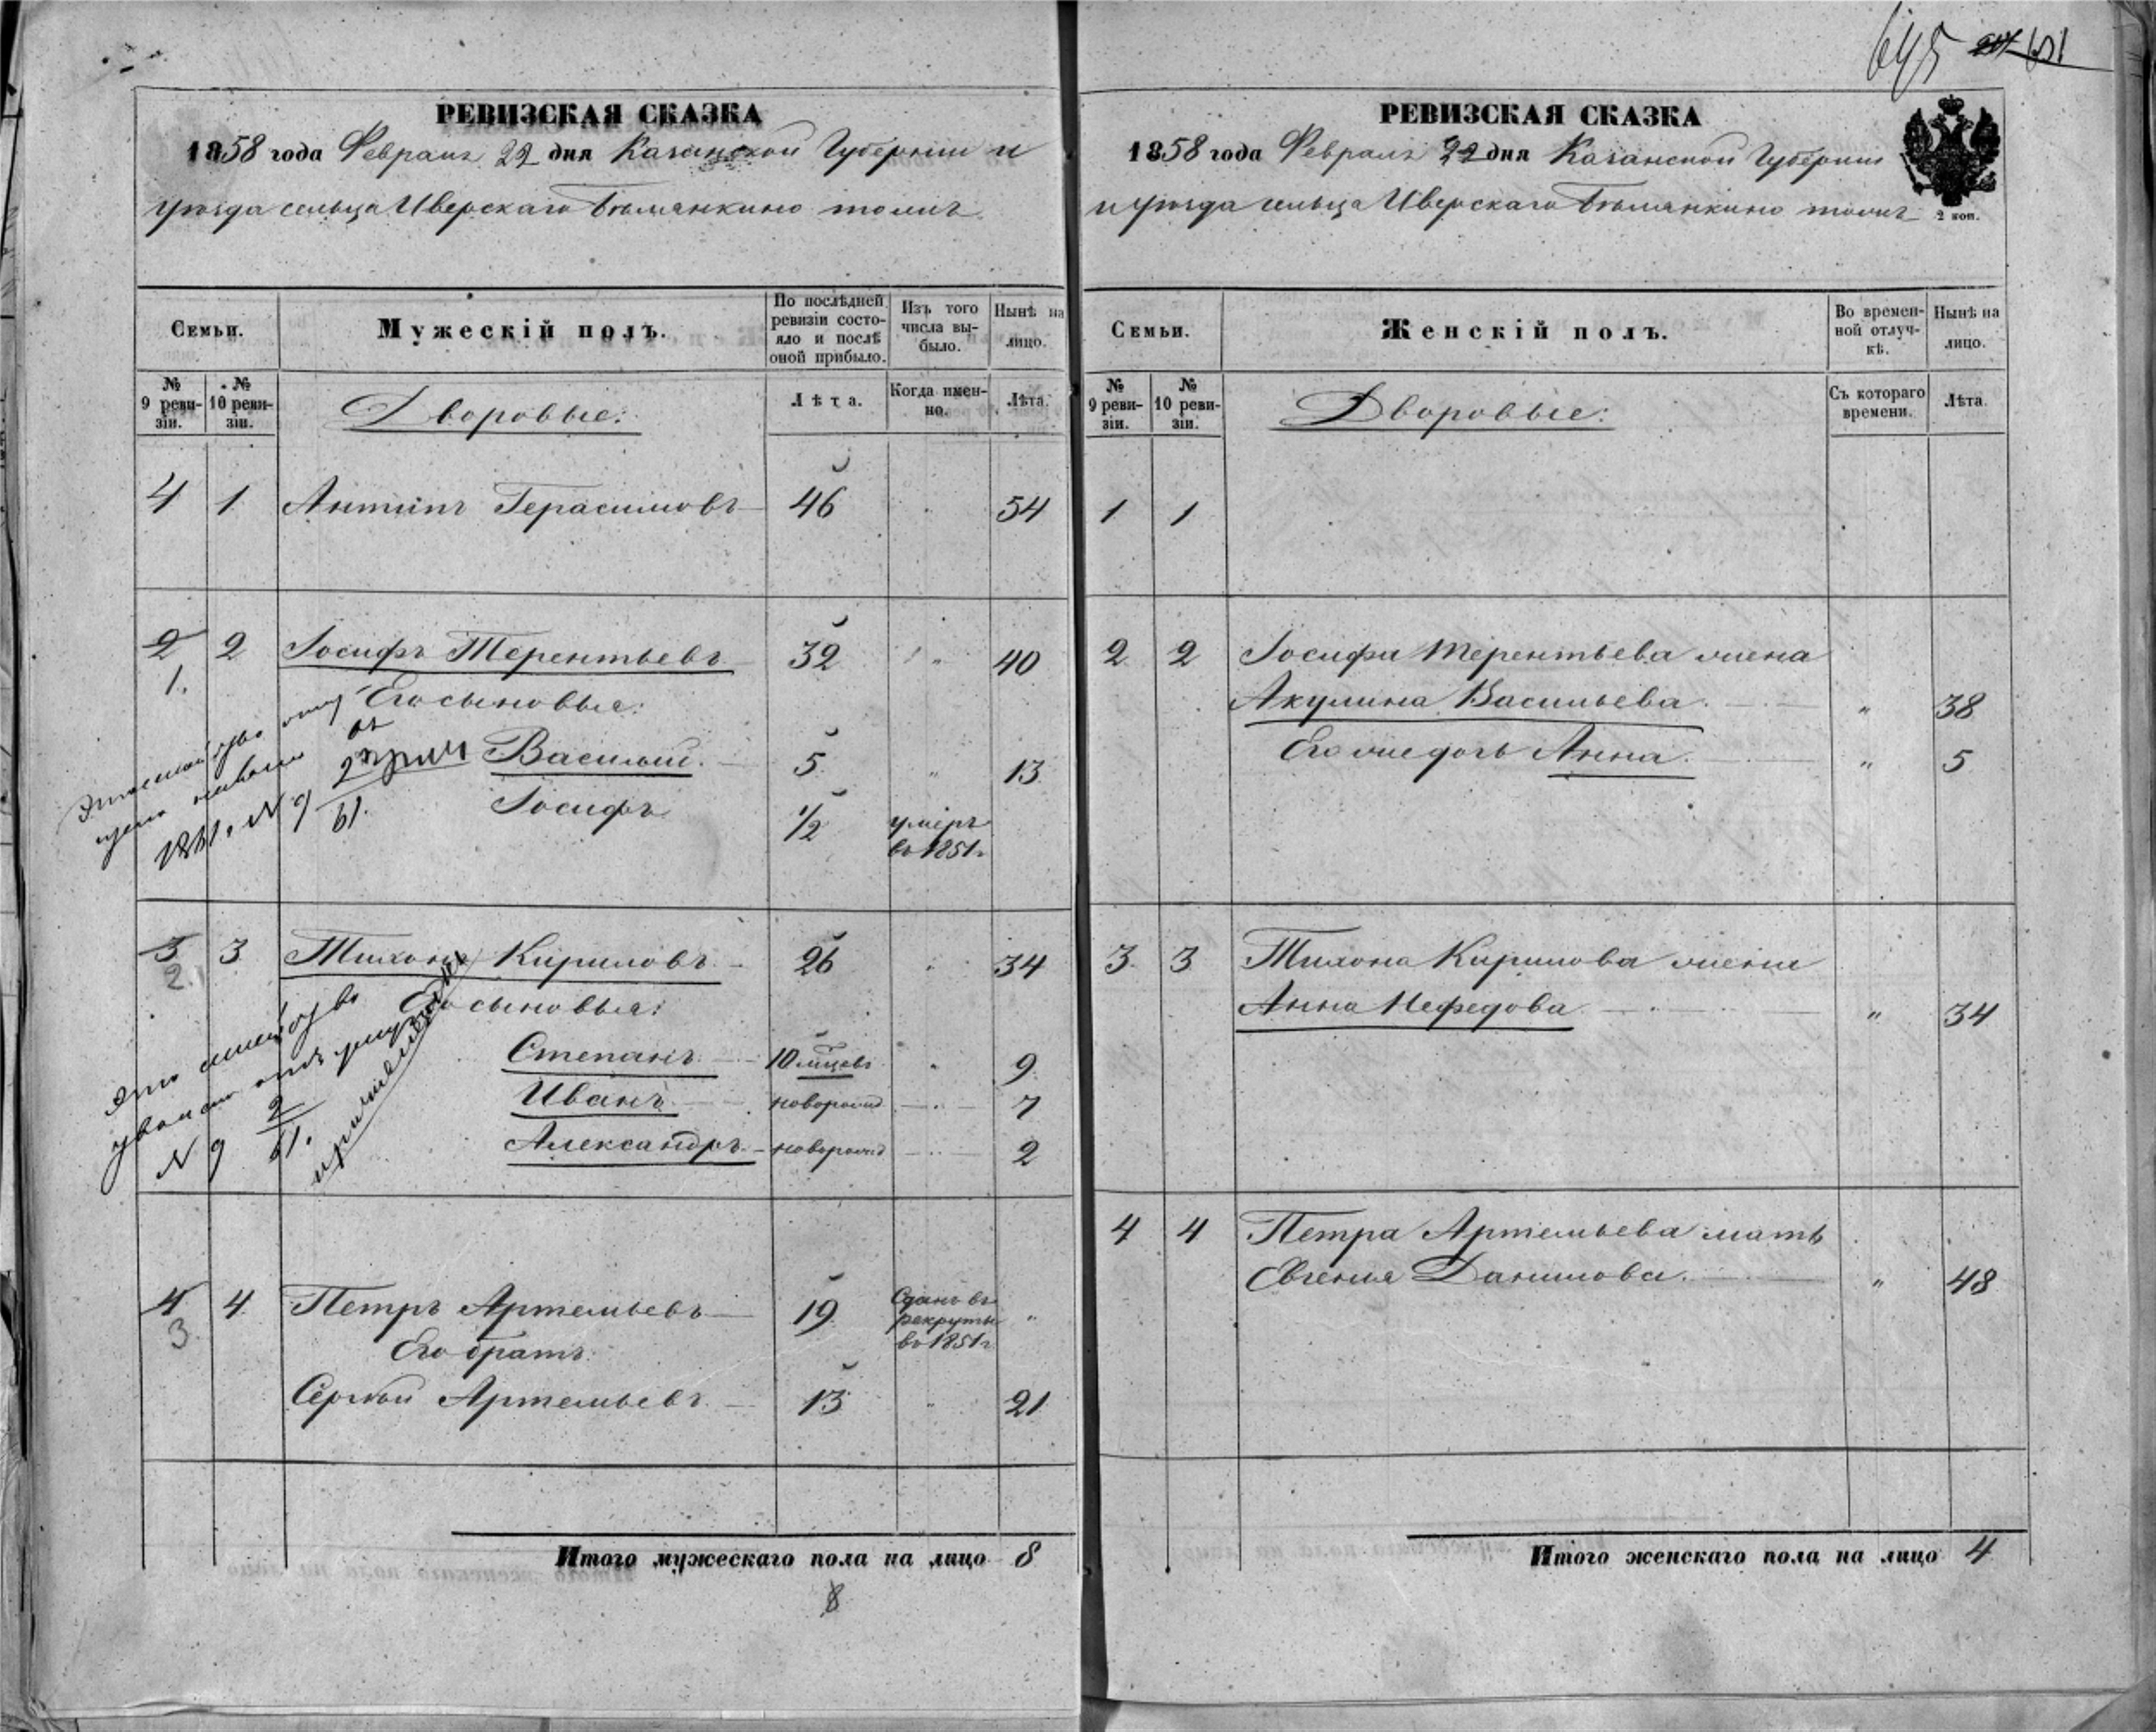 645 651
РЕВИЗСКАЯ СКАЗКА
1858 года Февраля 22 дня Казанской Губерніи и
уѣзда сельца Иверскаго Бѣлянкино тожъ
Семьи.
Мужескій полъ.
По послѣдней ревизіи состояло и послѣ оной прибыло.
Изъ того числа выбыло.
Нынѣ на лицо.
№ 9 ревизіи.
№ 10 ревизіи.
Дворовые:
Лѣта.
Когда именно.
Лѣта.
4 1 Антипъ Герасимовъ 46 54
2 2 Іосифъ Терентьевъ 32 " 40
1.
Его сыновья:
Василій 5 " 13
Іосифъ 1/2 умеръ
въ 1851 г.
1861. N 9 61.
3 3 Тихонъ Кириловъ 26 34
2.
Его сыновья:
Степанъ 10 мѣцовъ 9
Иванъ новорожд 7
Александръ новорожд 2
N 9 2 61.
4 4 Петръ Артемьевъ 19 Сданъ въ
рекруты "
въ 1851 г.
3.
Его братъ
Сергѣй Артемьевъ 13 " 21
Итого мужескаго пола на лицо 8
8
РЕВИЗСКАЯ СКАЗКА
1858 года Февраля 22 дня Казанской Губерніи
и уѣзда сельца Иверскаго Бѣлянкино тожъ
2 коп.
Семьи.
Женскій полъ.
Во временной отлучкѣ.
Нынѣ на лицо.
№ 9 ревизіи.
№ 10 ревизіи.
Дворовые:
Съ котораго времени.
Лѣта.
1 1
2 2 Іосифа Терентьева жена
Акулина Васильева " 38
Его же дочь Анна " 5
3 3 Тихона Кирилова жена
Анна Нефедова " 34
4 4 Петра Артемьева мать
Евгенія Данилова " 48
Итого женскаго пола на лицо 4